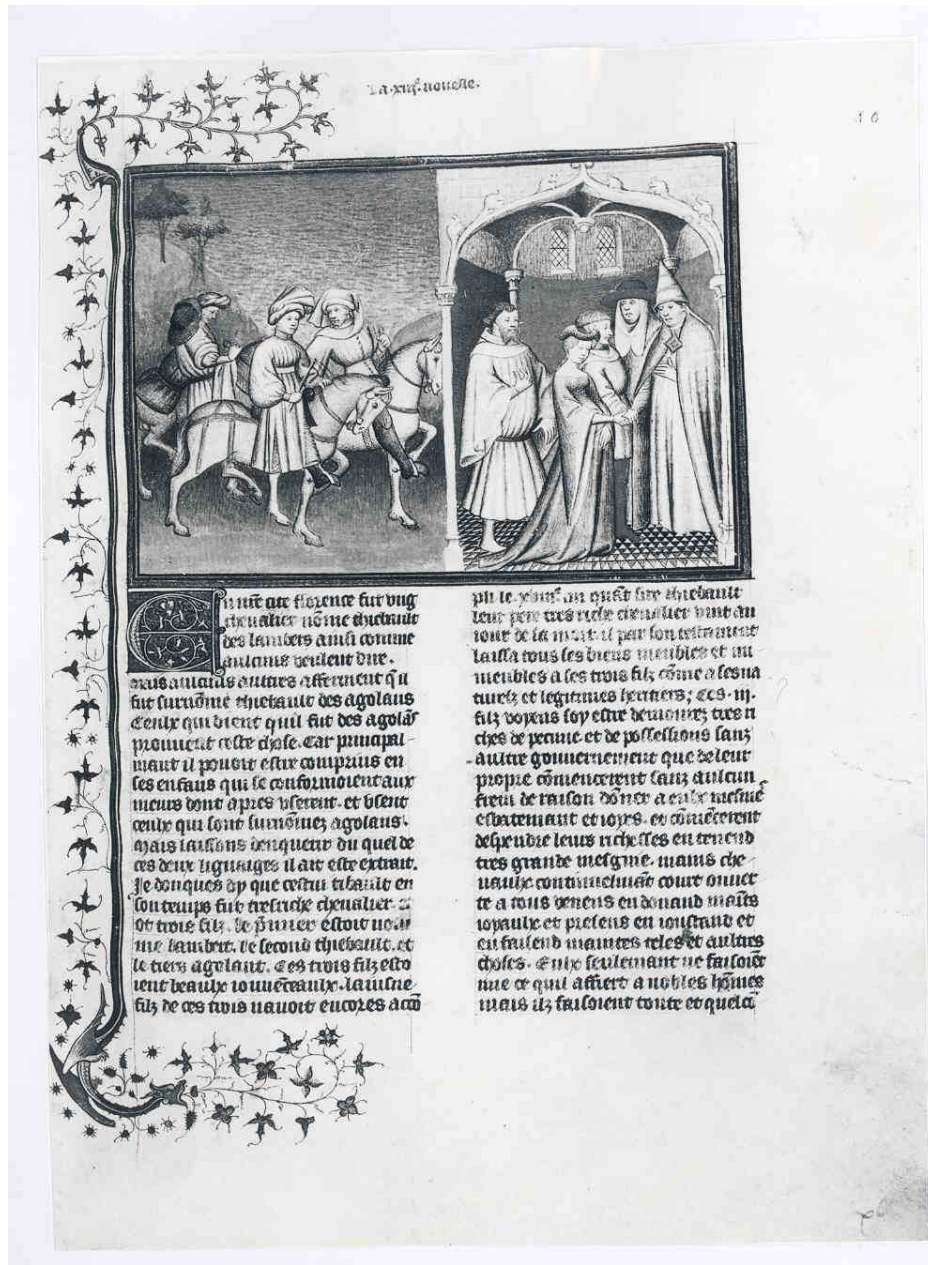 La .xiii. nouelle.
10
En nr̄e cite florence fut vng
cheualier nōme thiebault
des lambers ainsi comme
aulcuns veulent dire.
mais aulcuns aultres afferment q̄ il
fut surnōme thiebault des agolans
Ceulx qui dient quil fut des agolās
preuuent ceste chose. Car principal
mant il pouoit estre comprins en
ses enfans qui se conformoient aux
meurs dont apres vserent. et vsent
ceulx qui sont surnōmez agolans.
Mais laissons denquerir du quel de
ces deux lignaiges il ait este extrait.
Je donques dy que cestui tibault en
son temps fut tresriche cheualier
ot trois filz. le p̄mier estoit nom
me lambert. le second thiebault. et
le tiers agolant. Ces trois filz esto
ient beaulx iouuēceaulx. laisne
filz de ces trois nauoit encores accō
pli le an quāt sire thiebault
leur pere tres riche cheualier vint au
iour de la mort. il par son testament
laissa tous ses biens meubles et im
meubles a ses trois filz cōme a ses na
turelz et legitimes heritiers; Ces .iij.
filz voyens soy estre demourez tres ri
ches de pecune et de possessions sanz
aultre gouuernement que de leur
propre cōmencerent sanz aulcun
frein de raison dōner a eulx mesmē
esbatemant et ioyes. et cōmēcerent
despendre leurs richesses en tenend
tres grande mesgnie. mains che
uaulx continuelmāt court ouuer
te a tous venens en donand maīts
ioyaulx et presens en ioustand et
en faisend maintes teles et aultres
choses. Eulx seulemant ne faisoiēt
mie ce quil affiert a nobles hōmes
mais ilz faisoient toute et quelcō